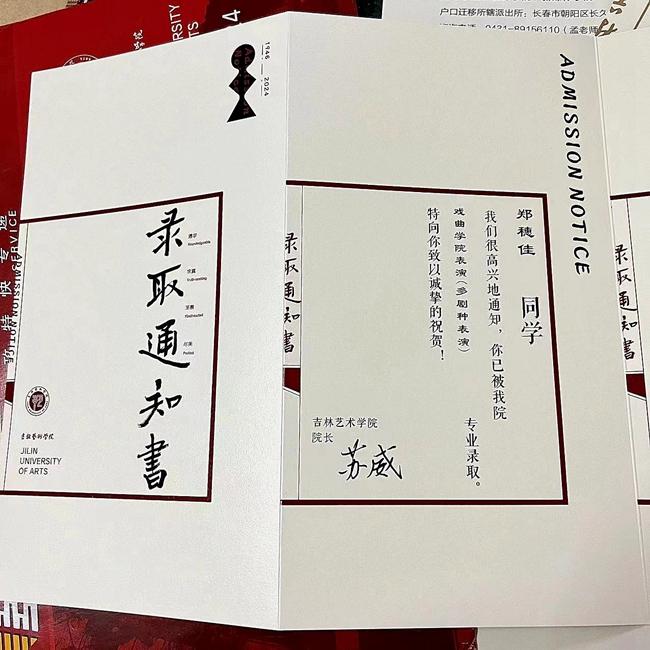 户口迁移所辖派出所：长春市朝阳区长久
0431-89156110（孟老师
1946
2024
ADMISSION NOTICE
录取通知書
吉林藝術学院
JILIN
UNIVERSITY
OF ARTS
郑穗佳 同学
我们很高兴地通知，你已被我院
戏曲学院表演（多剧种表演） 专业录取。
特向你致以诚挚的祝贺！
吉林艺术学院
院长
苏威
录取通知書
特快专递